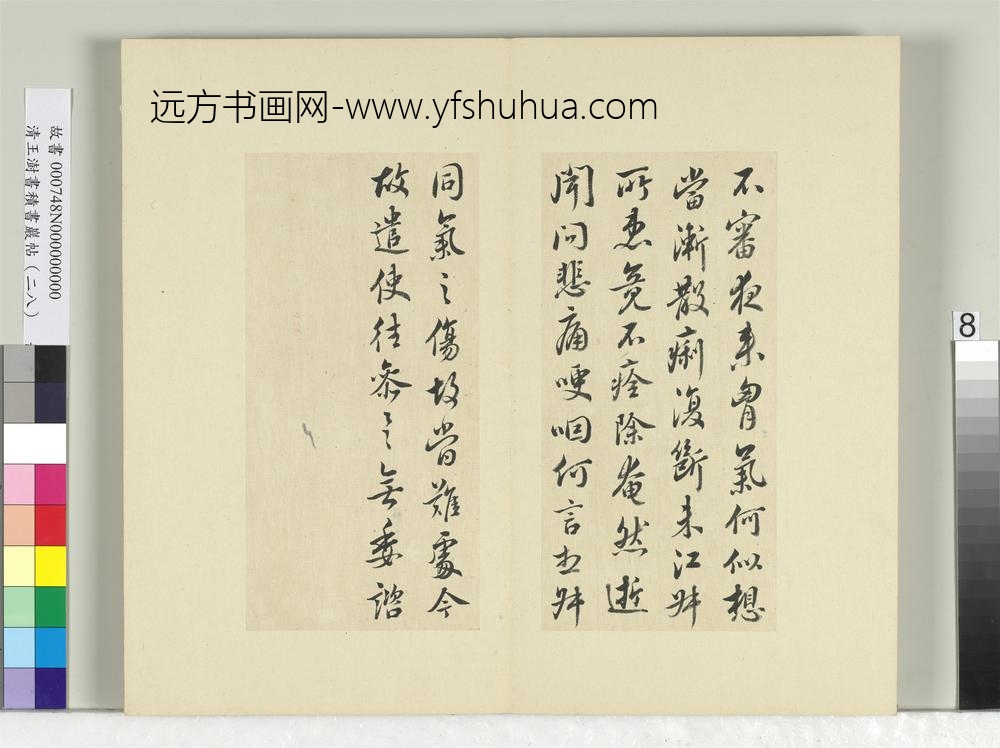 远方书画网-www.yfshuhua.com
故書 000748N000000000
清王澍書積書巖帖(二八)
8
不審夜來胷氣何似想
當漸散痢復斷未江妹
所患竟不痊除奄然逝
聞問悲痛哽咽何言出妹
同氣之傷故當難處今
故遣使往參之無委諮